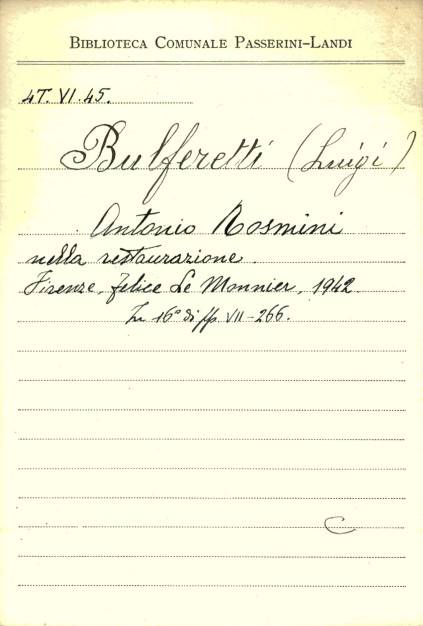 BIBLIOTECA COMUNALE PASSERINI-LANDI
4T. VI. 45.
Bulferetti (Luigi)
Antonio Rosmini
nella restaurazione.
Firenze, Felice Le Monnier, 1942.
In 16° di pp. VII-266.
C